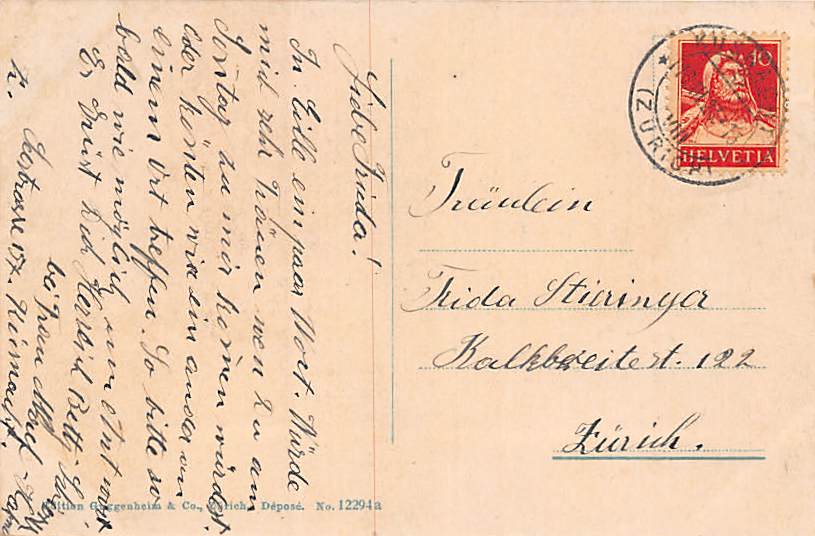 Liebe Frida!
In Eille ein paar Wort. Würde
mich sehr fräuen wen du am
Sontag zu mir komen würdest.
oder könten wir ein ander an
einem Ort treffen. So bitte so
bald wie möglich um Antwort
Es Grüst dich Herzlich Betty
bei Frau
Fräulein
Frida Stieringer
Kalkbreitest. 122
Zürich.
10
HELVETIA
(ZÜRICH)
Edition Guggenheim & Co., Zürich, Déposé. No. 12294a